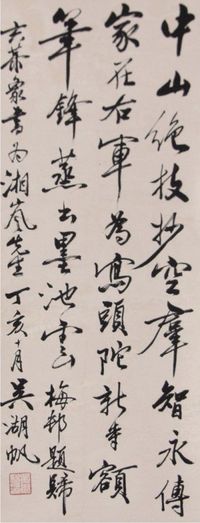 中山絕技妙空羣智永傳
家在右軍為寫頭陀新寺額
筆鋒蘸出墨池雲 梅邨題歸
玄恭象書為湘嵐先生 丁亥十月 吳湖帆